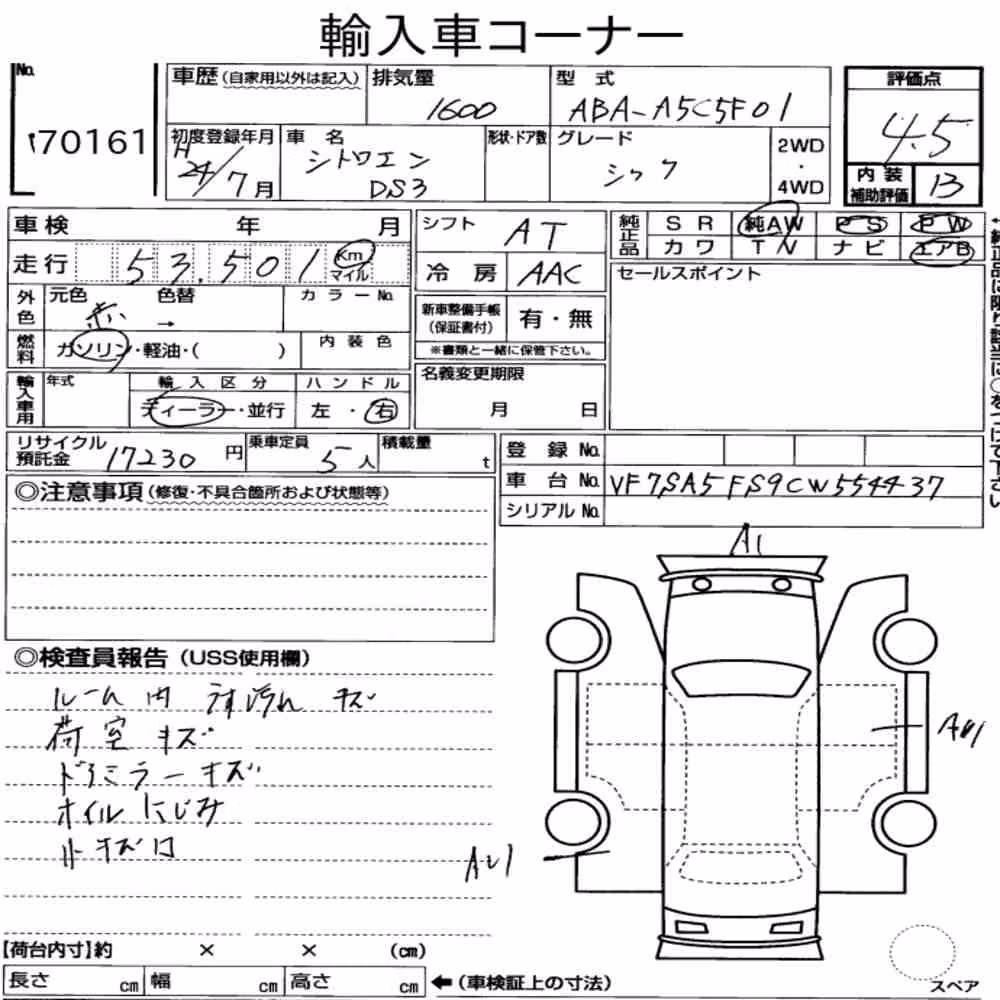 輸入車コーナー
No.
車歴 (自家用以外は記入)
排気量
型式
評価点
1600
ABA-A5C5F01
4.5
170161
初度登録年月
車名
形状・ドア数
グレード
2WD
・
4WD
H
24/7月
シトロエン
DS3
シック
内装
補助評価
13
車検 年 月
シフト
AT
純正品
SR 純AW PS PW
カワ TV ナビ エアB
走行
53,501
Km
マイル
冷房
AAC
セールスポイント
外色
元色
色替
カラーNo.
赤
→
新車整備手帳
(保証書付)
有・無
※書類と一緒に保管下さい。
燃料
ガソリン・軽油・( )
内装色
輸入車用
年式
輸入区分
ハンドル
ディーラー・並行
左・右
名義変更期限
月 日
リサイクル
預託金
17230円
乗車定員
5人
積載量
t
登録No.
車台No.
VF7SA5FS9CW554437
シリアルNo.
◎注意事項 (修復・不具合箇所および状態等)
A1
◎検査員報告 (USS使用欄)
ルーム内 うす汚れ キズ
荷室 キズ
ドアミラーキズ
オイルにじみ
小キズ凹
AU1
AU1
【荷台内寸】約 × × (cm)
長さ cm 幅 cm 高さ cm
←(車検証上の寸法)
スペア
←純正品に限り該当に○をつけて下さい